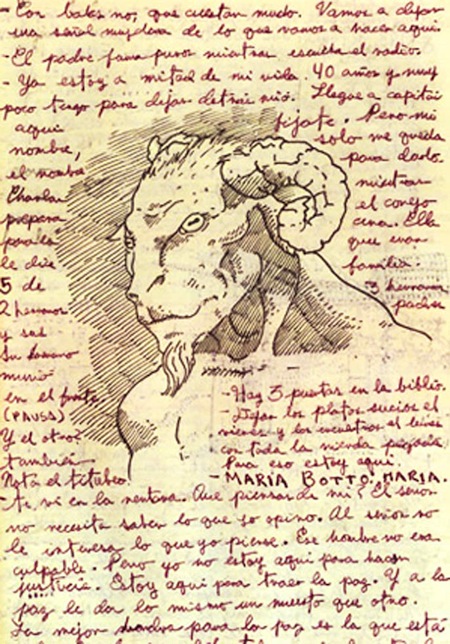 - Con balas no, que cuestan mucho. Vamos a dejar
una señal muy clara de lo que vamos a hacer aquí.
- El padre fuma puros mientras escucha el radio.
- Ya estoy a mitad de mi vida. 40 años y muy
poco tengo para dejar detrás mío. Llegué a capitán
aquí fíjate. Pero mi
nombre, solo me queda
el nombre para darlo.
Charla mientras
prepara el conejo
para la cena. Ella
le dice que eran
5 de familia.
2 hermanos 3 hermanas
y sus padres
Su hermano
murió
en el frente
(PAUSA)
Y el otro
también
Nota el titubeo
- Hay 3 puertas en la biblio.
- Dejan los platos sucios el
viernes y los encuentras el lunes
con toda la mierda pegada.
Para eso estoy aquí.
- MARIA BOTTO: MARIA.
- te vi en la ventina. Que piensas de mi? El señor
no necesita saber lo que yo opino. Al señor no
le interesa lo que yo piense. Ese hombre no era
culpable. Pero yo no estoy aquí para hacer
justicia. Estoy aquí para traer la paz. Y a la
paz le da lo mismo un muerto que otro.
La mejor para la paz es la que está